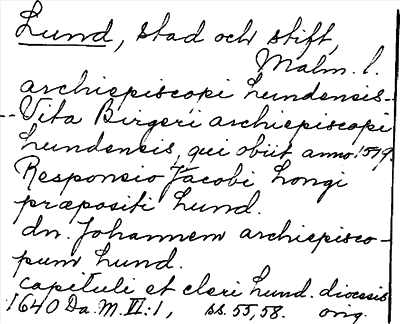 Lund, stad och stift,
Malm. l.
archiepiscopi Lundensis.-
-- Vita Birgeri archiepiscopi
Lundensis, qui obiit anno 1519.
Responsio Jacobi Longi
præpositi Lund.
dn. Johannem archiepisco-
pum Lund.
capituli et cleri Lund. diocesis
1640 Da. M. II:1, ss. 55, 58. orig.